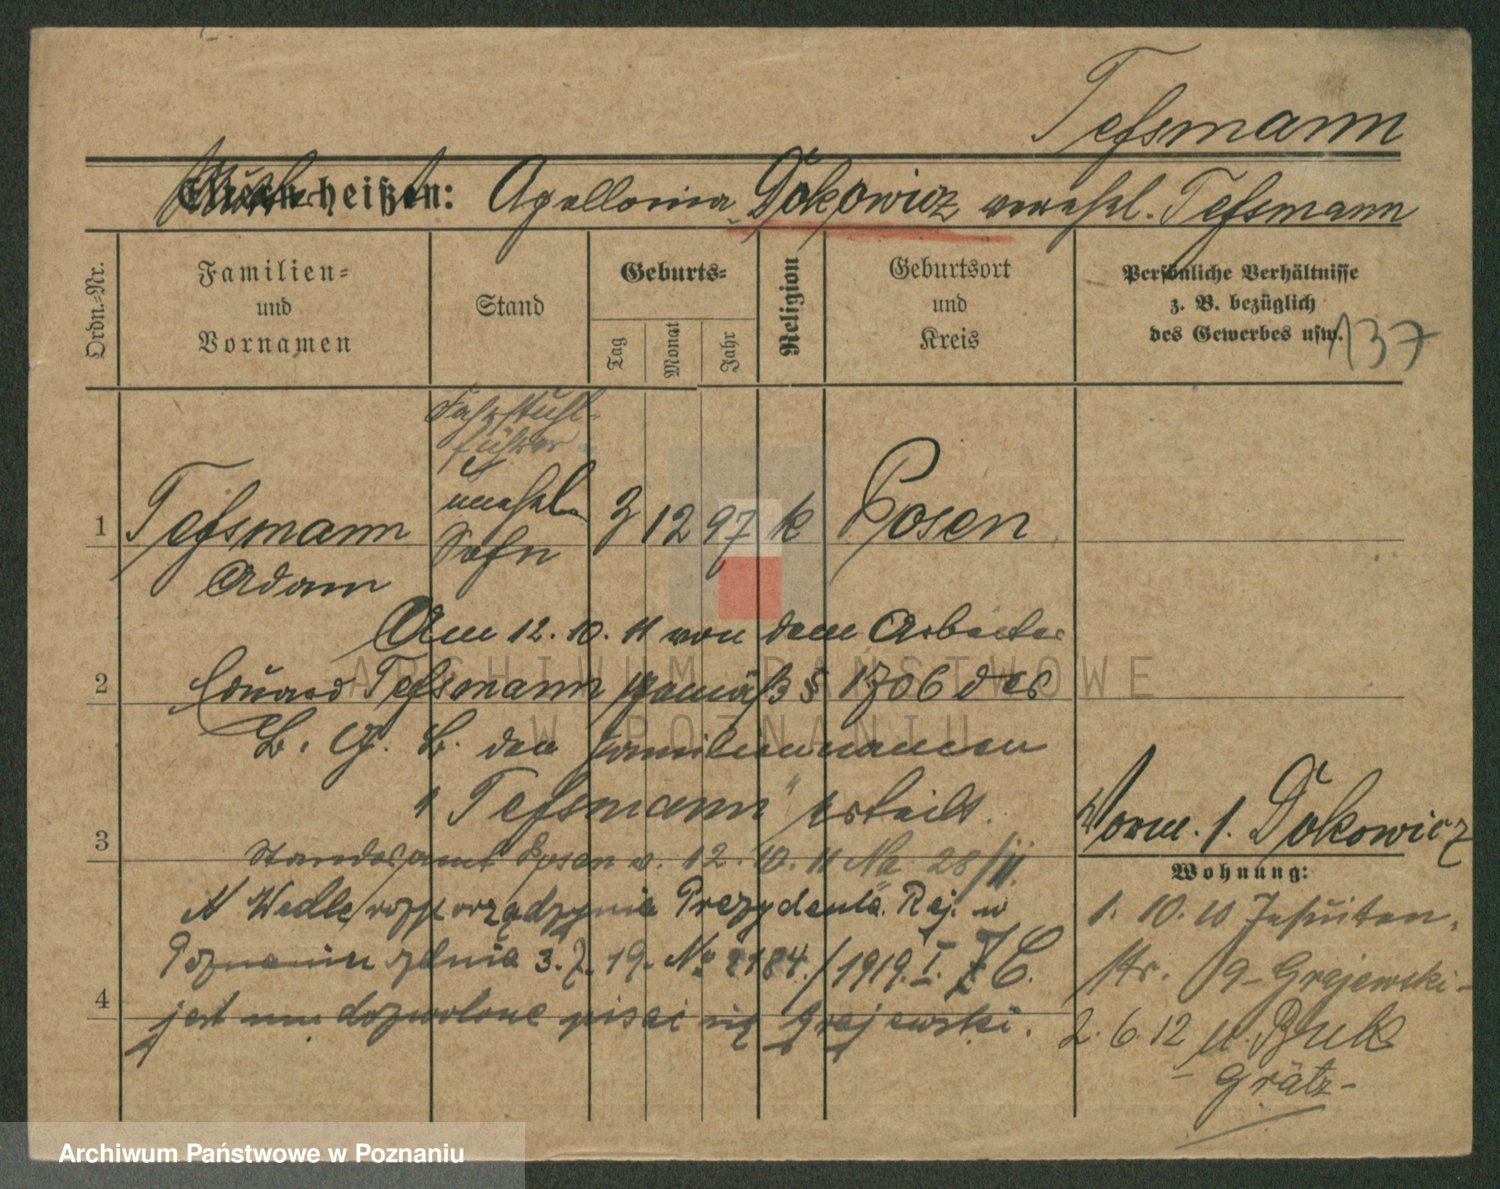 Tessmann
Eltern heißen: Apollonia Dokowicz verehel. Tessmann
Ordn.-Nr.
Familien-
und
Vornamen
Stand
Geburts-
Tag
Monat
Jahr
Religion
Geburtsort
und
Kreis
Persönliche Verhältnisse
z. B. bezüglich
des Gewerbes usw.
137
Fahrstuhl-
führer
1 Tessmann unehel. 3 12 97 k Posen
Adam Sohn
Am 12.10.11 von dem Arbeiter
2 Eduard Tessmann gemäß § 1706 des
B. G. B. den Familiennamen
"Tessmann" erteilt.
3 Standesamt Posen v. 12.10.11 No 28/11.
Vorm. 1. Dokowicz
Wohnung:
W Wedle rozporządzenia Prezydenta Rej. w
Poznaniu z dnia 3.7.19. No 2184./1919. I. Z C.
4 jest mu dozwolone pisać się Grajewski.
1. 10. 10 Jesuiten-
str. 9 - Grajewski -
2. 6. 12 n. Buk
- Grätz -
ARCHIWUM PAŃSTWOWE
W POZNANIU
Archiwum Państwowe w Poznaniu